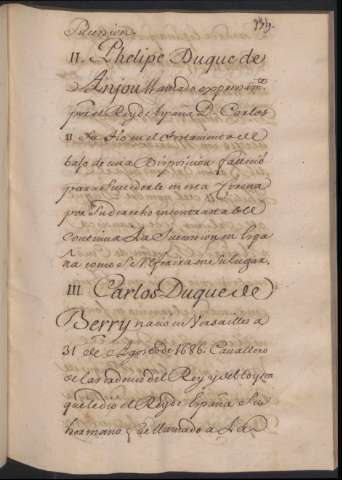 Sucesion.
II. Phelipe Duque de
Anjou llamado expresam.te
por el Rey de España D. Carlos
II su tio en el testamento de
bajo de cuia Disposicion fallecio
para sucederle en esta Corona
por su derecho incontrastable
continua la sucesion en
como se referira en su lugar.
III. Carlos Duque de
Berry nacio en Versailles a
31 de Agosto de 1686. Cavallero
de las ordenes del Rey y del toyson
que le dio el Rey de España su
hermano y llamado a la